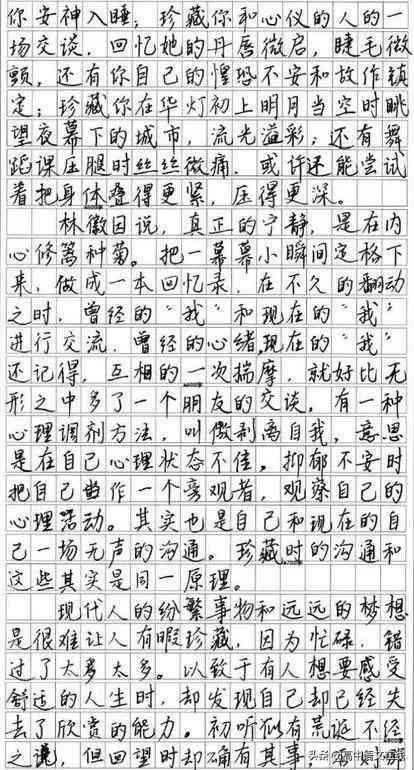 你安神入睡；珍藏你和心仪的人的一
场交谈，回忆她的丹唇微启，睫毛微
颤，还有你自己的惶恐不安和故作镇
定；珍藏你在华灯初上明月当空时眺
望夜幕下的城市，流光溢彩；还有舞
蹈课压腿时丝丝微痛，或许还能尝试
着把身体叠得更紧，压得更深。
林徽因说，真正的宁静，是在内
心修篱种菊。把一幕幕小瞬间定格下
来，做成一本回忆录，在不久的翻动
之时，曾经的“我”和现在的“我”
进行交流，曾经的心绪，现在的“我”
还记得，互相的一次揣摩，就好比无
形之中多了一个朋友的交谈。有一种
心理调剂方法，叫做剥离自我，意思
是在自己心理状态不佳，抑郁不安时
把自己当作一个旁观者，观察自己的
心理活动。其实也是自己和现在的自
己一场无声的沟通。珍藏时的沟通和
这些其实是同一原理。
现代人的纷繁事物和远远的梦想
是很难让人有暇珍藏，因为忙碌，错
过了太多太多。以致于有人想要感受
舒适的人生时，却发现自己却已经失
去了欣赏的能力。初听似有荒诞不经
之说，但回望时却确有其事。
头条